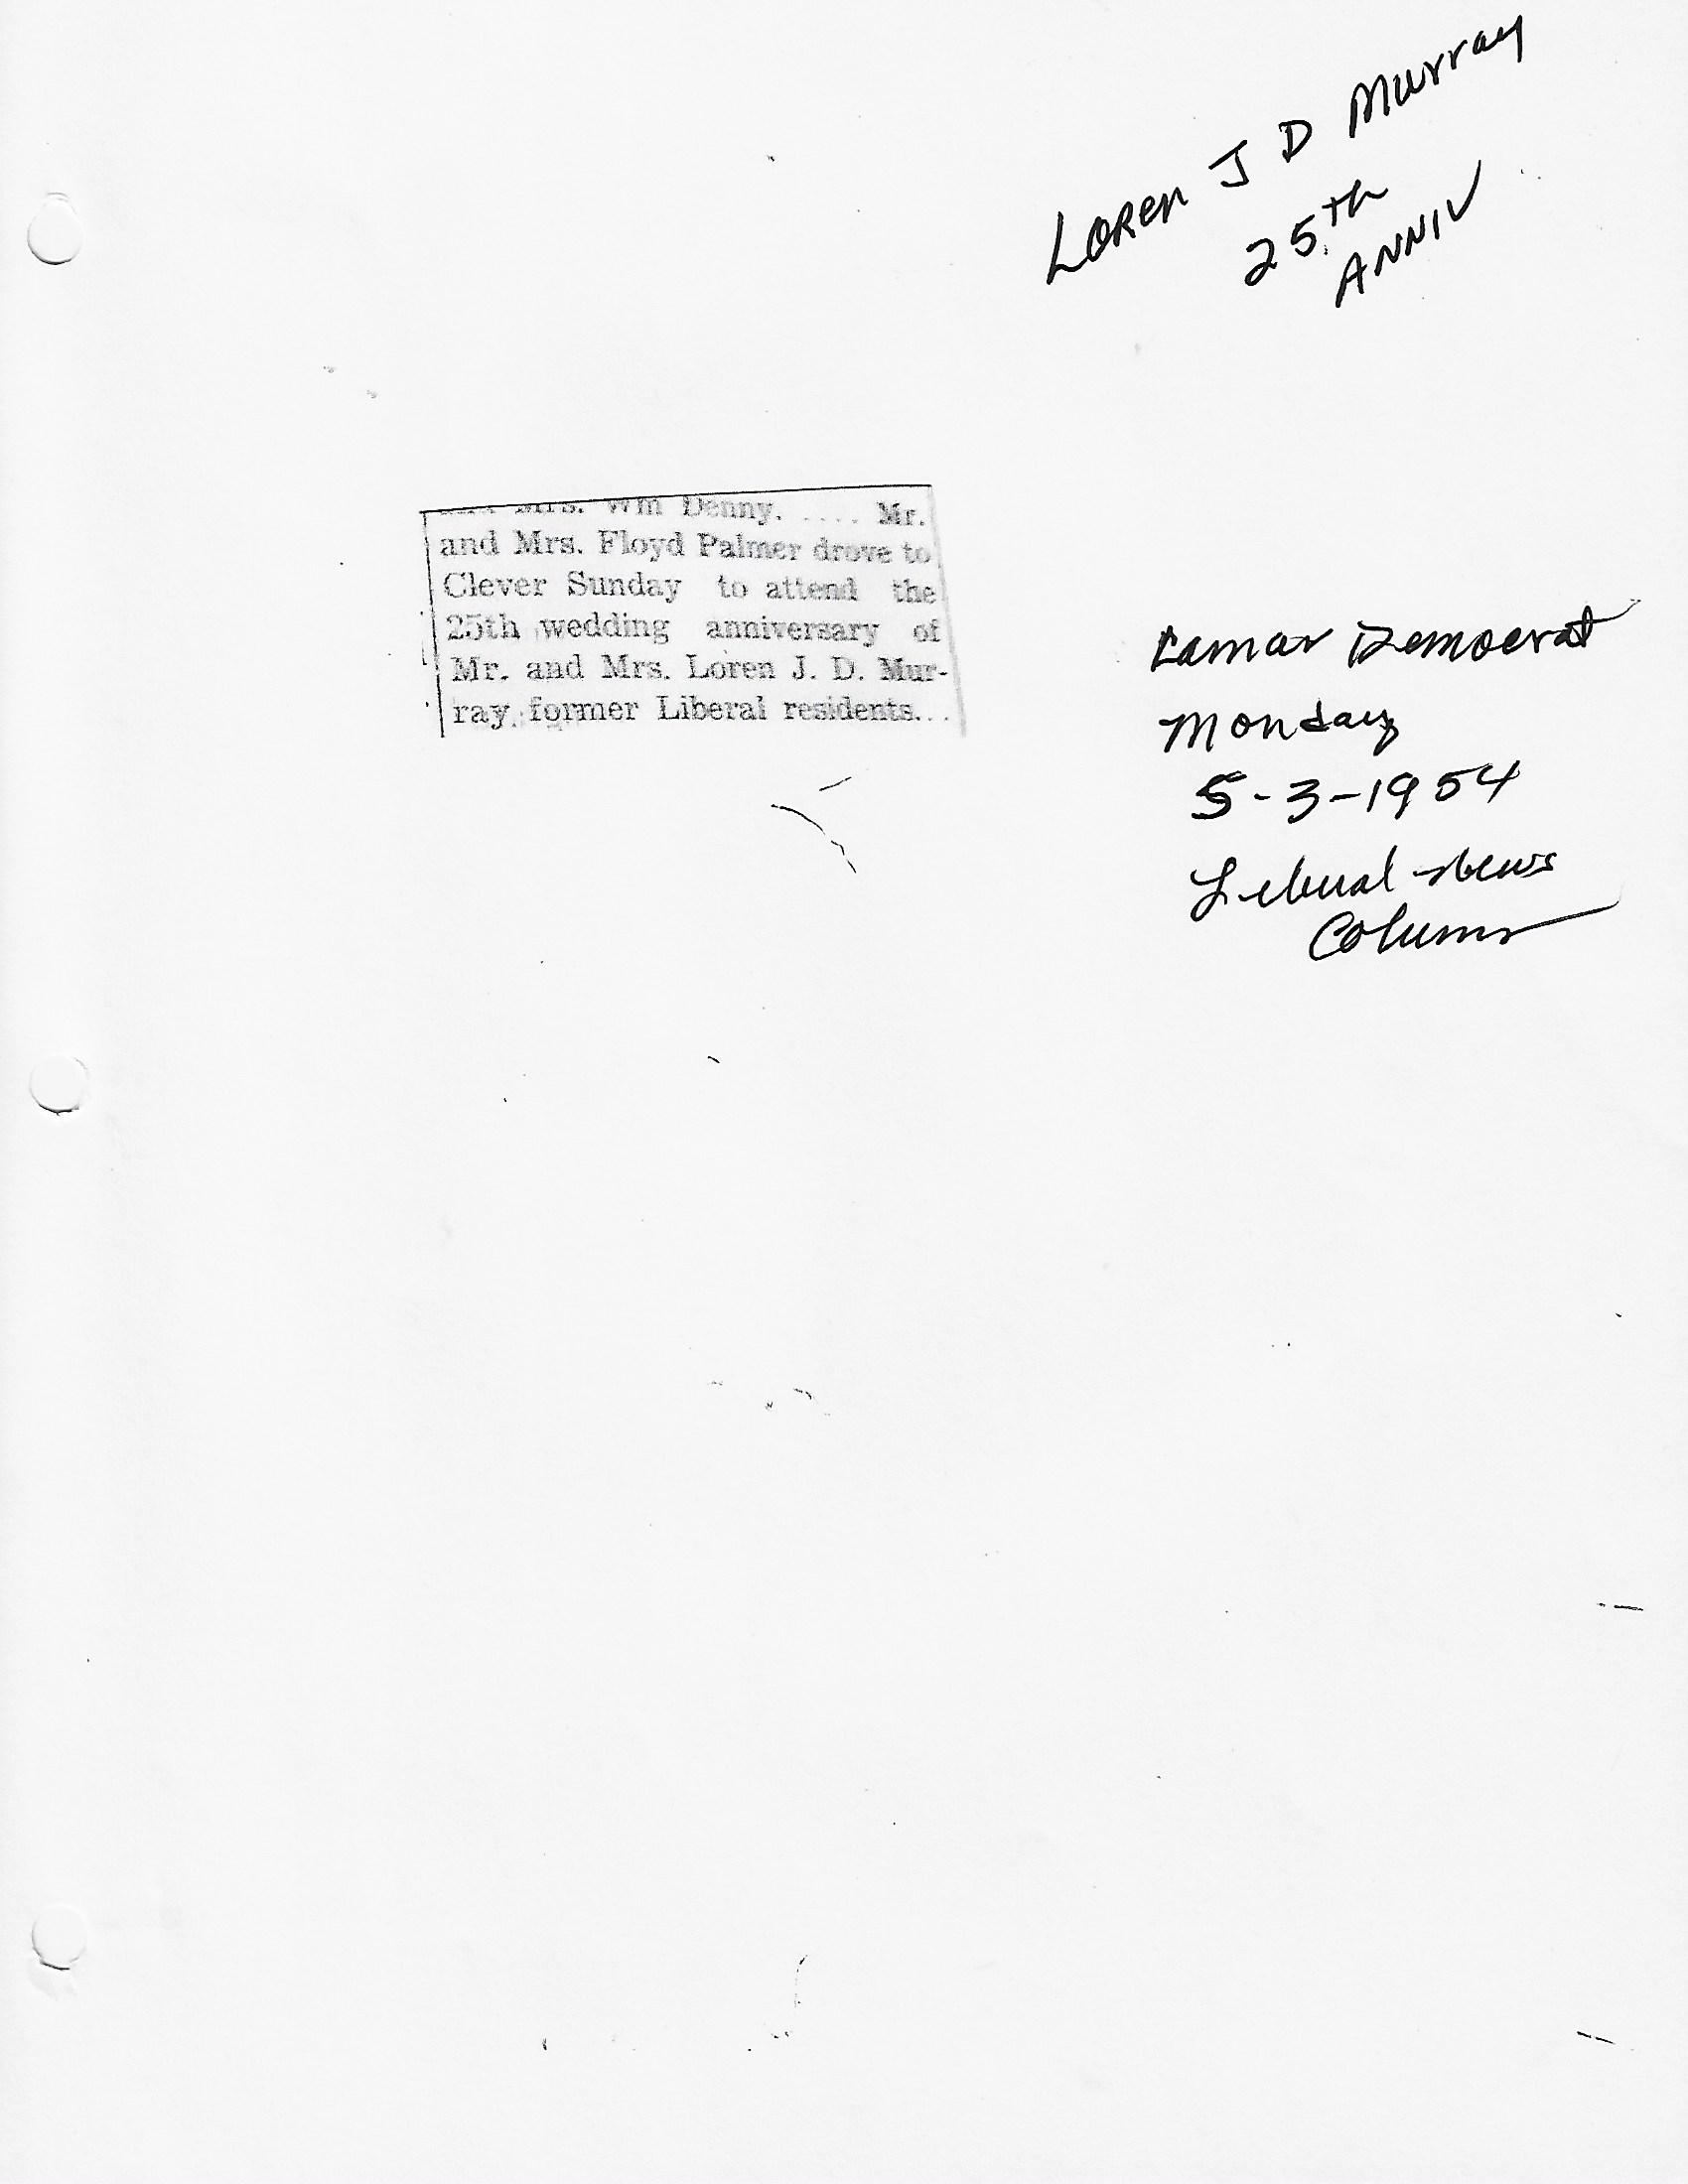 Loren J D Murray
25th
ANNIV
Mrs. Wm Denny. .... Mr.
and Mrs. Floyd Palmer drove to
Clever Sunday to attend the
25th wedding anniversary of
Mr. and Mrs. Loren J. D. Mur-
ray, former Liberal residents...
Lamar Democrat
Monday
5-3-1954
Liberal News
Column